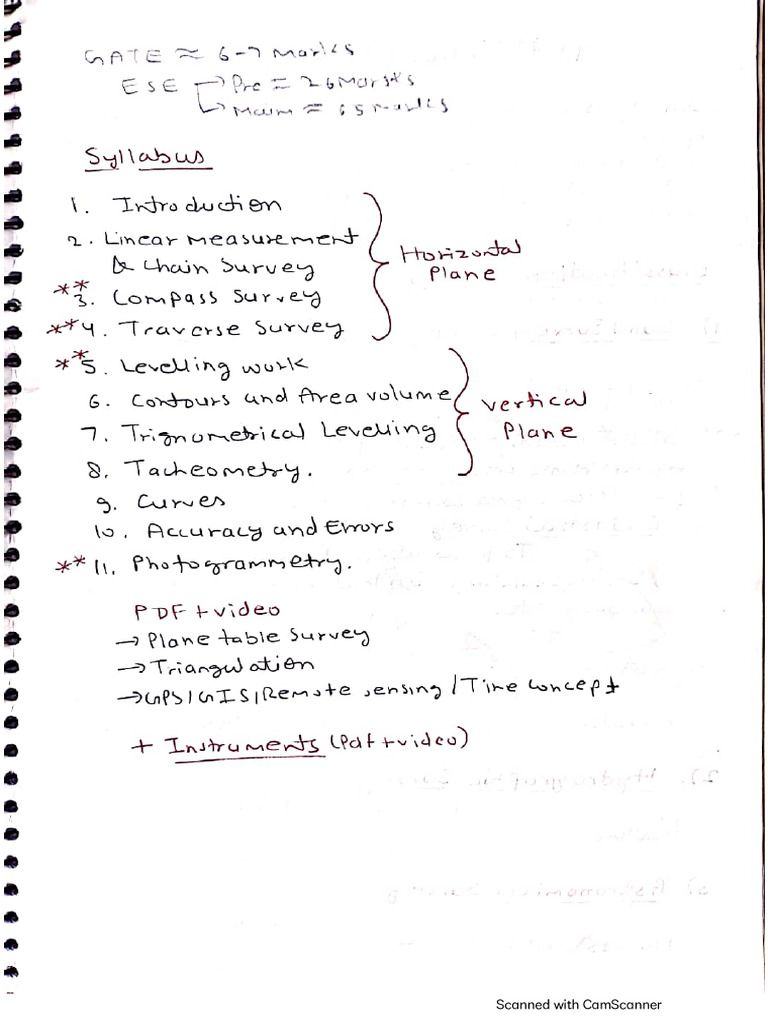 GATE ≈ 6-7 Marks
ESE → Pre = 26 Marks
→ Main ≈ 65 Marks
Syllabus
1. Introduction
2. Linear measurement
& Chain Survey
** 3. Compass Survey
Horizontal
Plane
** 4. Traverse Survey
** 5. Levelling work
6. Contours and Area volume
7. Trignometrical Levelling
vertical
Plane
8. Tacheometry.
9. Curves
10. Accuracy and Errors
** 11. Photogrammetry.
PDF + video
→ Plane table Survey
→ Triangulation
→ GPS/GIS/Remote sensing / Time concept
+ Instruments (Pdf + video)
Scanned with CamScanner